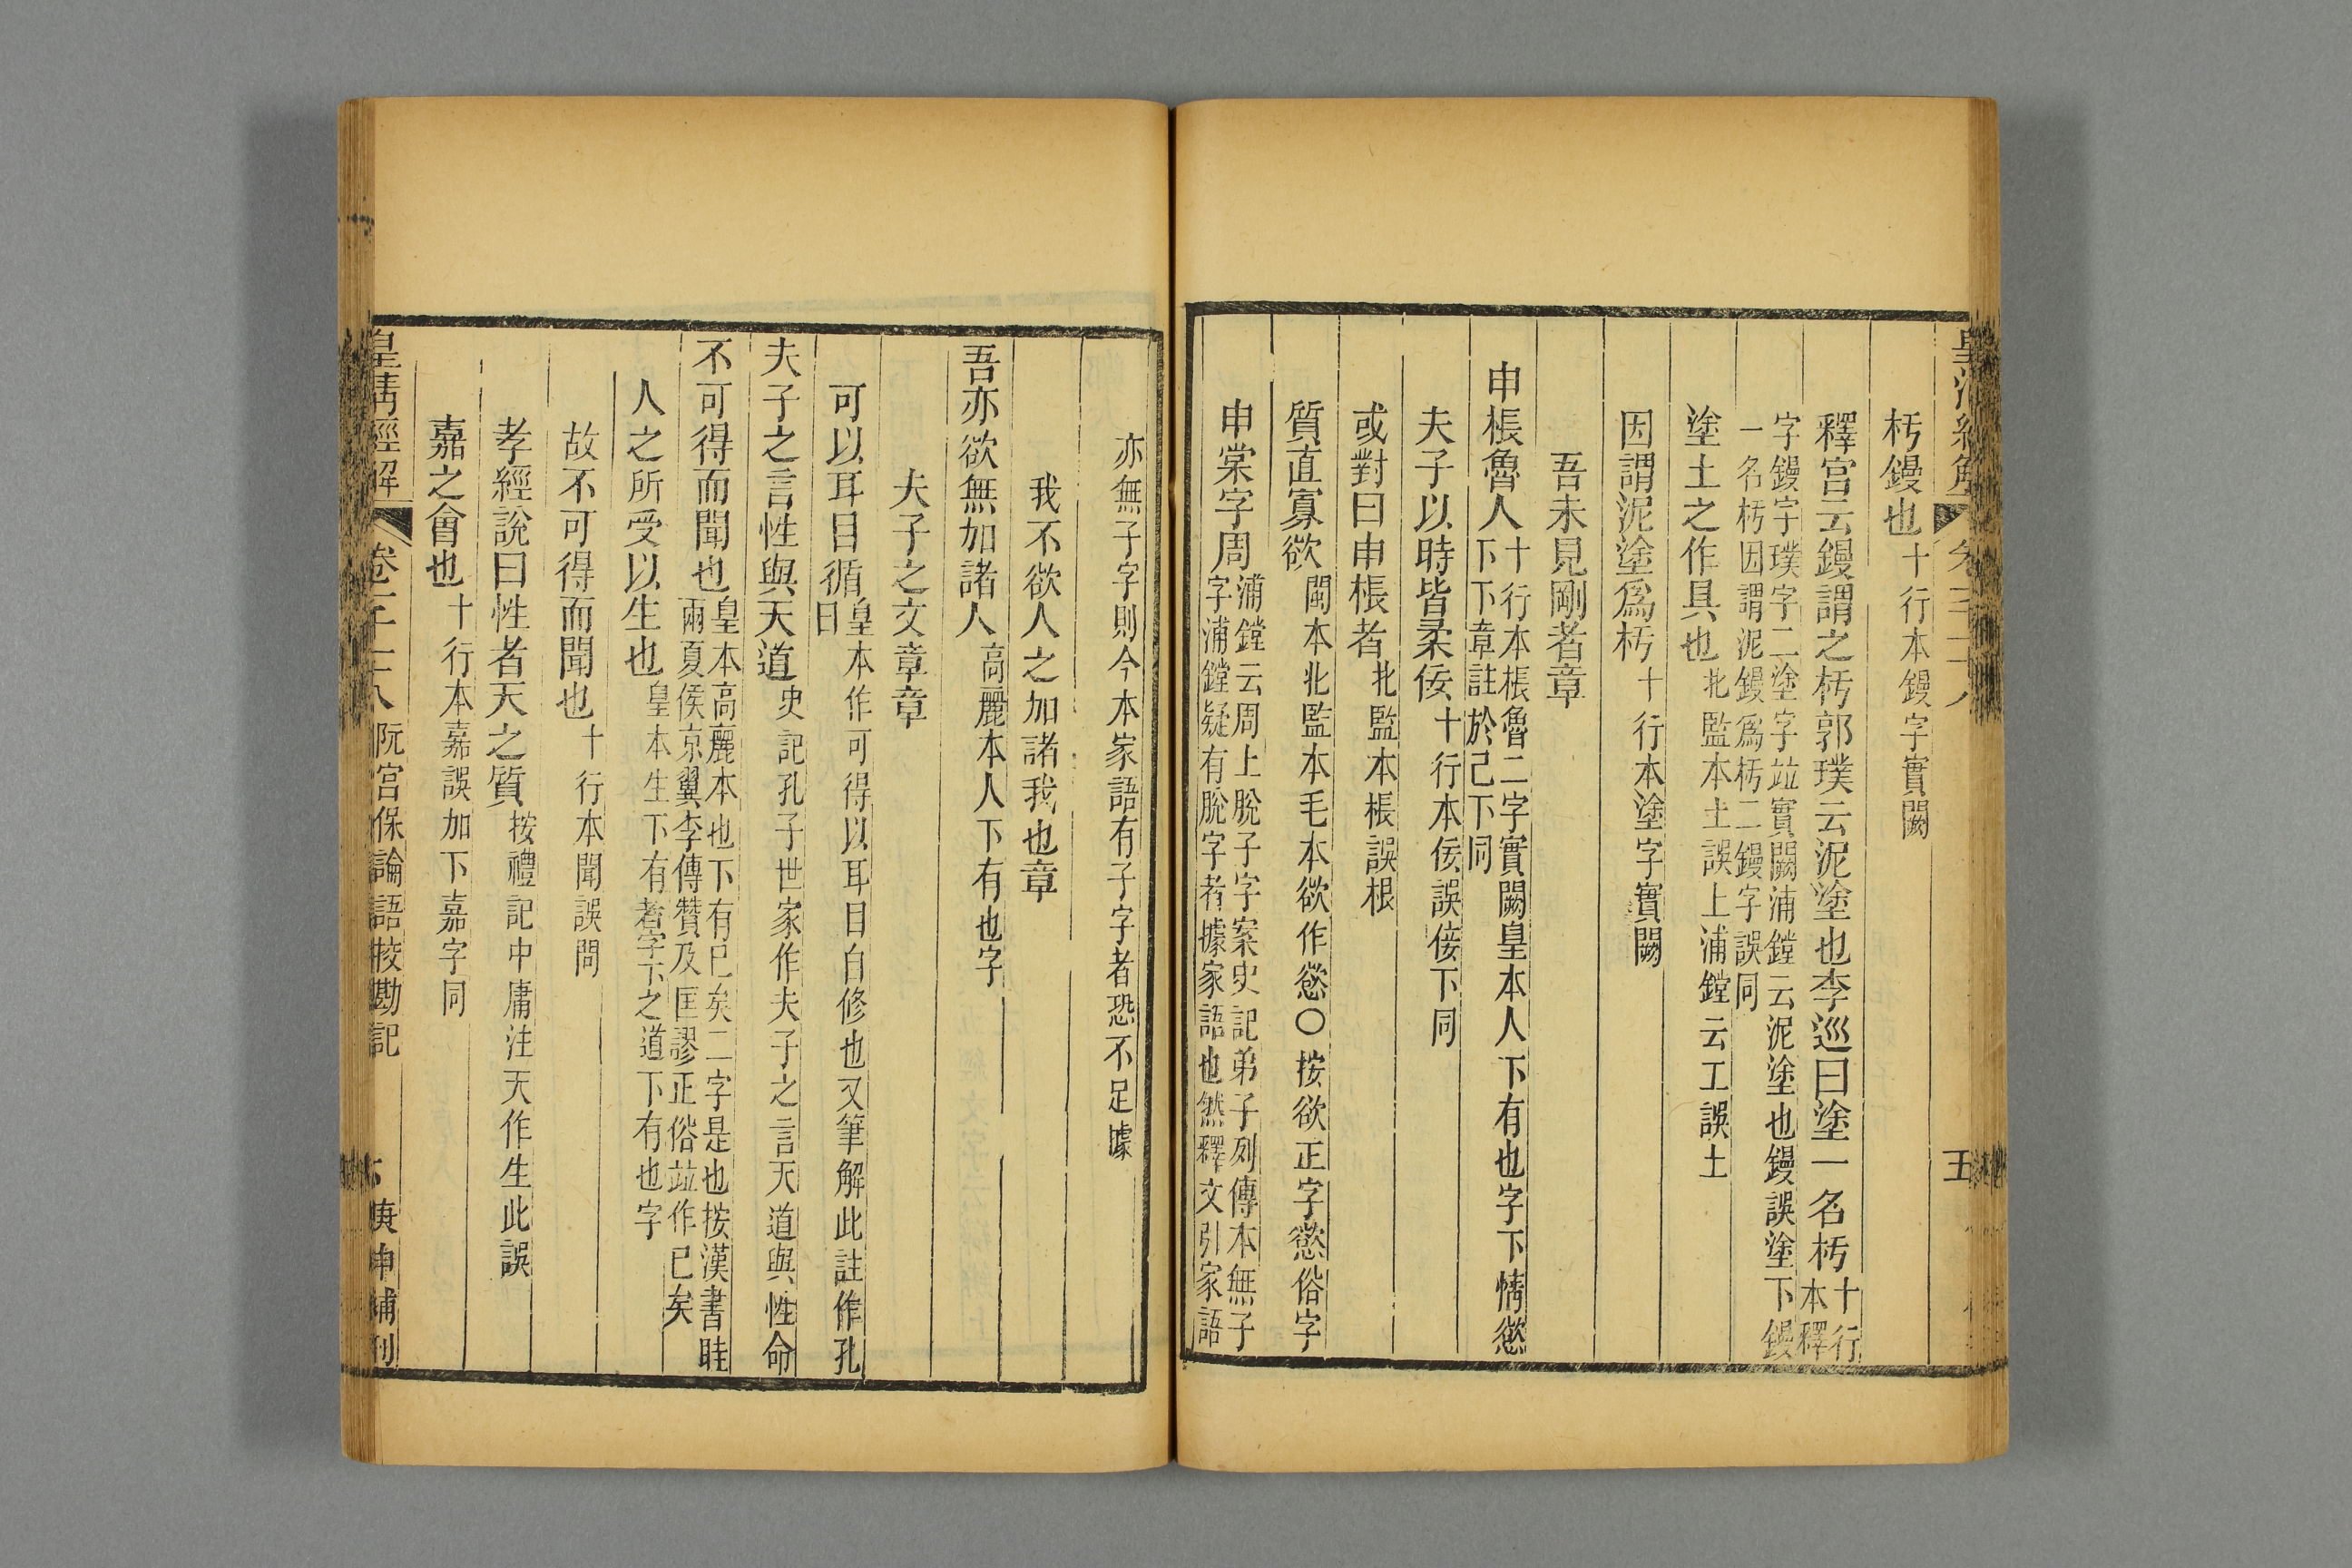 杇鏝也十行本鏝字實闕
釋宮云鏝謂之杇郭璞云泥塗也李巡曰塗一名杇十行本釋
字鏝字璞字二塗字竝實闕浦鏜云泥塗也鏝誤塗下鏝
一名杇因謂泥鏝爲杇二鏝字誤同
塗土之作具也北監本土誤上浦鏜云工誤土
因謂泥塗爲杇十行本塗字實闕
吾未見剛者章
申棖魯人十行本棖魯二字實闕皇本人下有也字下情慾
下下章註於己下同
夫子以時皆柔佞十行本佞誤倿下同
或對曰申棖者北監本棖誤根
質直寡欲閩本北監本毛本欲作慾〇按欲正字慾俗字
申棠字周浦鏜云周上脫子字案史記弟子列傳本無子
字浦鏜疑有脫字者據家語也然釋文引家語
亦無子字則今本家語有子字者恐不足據
我不欲人之加諸我也章
吾亦欲無加諸人高麗本人下有也字
夫子之文章章
可以耳目循皇本作可得以耳目自修也又筆解此註作孔
曰
夫子之言性與天道史記孔子世家作夫子之言天道與性命
不可得而聞也皇本高麗本也下有已矣二字是也按漢書眭
兩夏侯京翼李傳贊及匡謬正俗竝作已矣
人之所受以生也皇本生下有者字下之道下有也字
故不可得而聞也十行本聞誤問
孝經說曰性者天之質按禮記中庸注天作生此誤
嘉之會也十行本嘉誤加下嘉字同
皇清經解 卷千十八 阮宮保論語挍勘記 五 庚申補刊